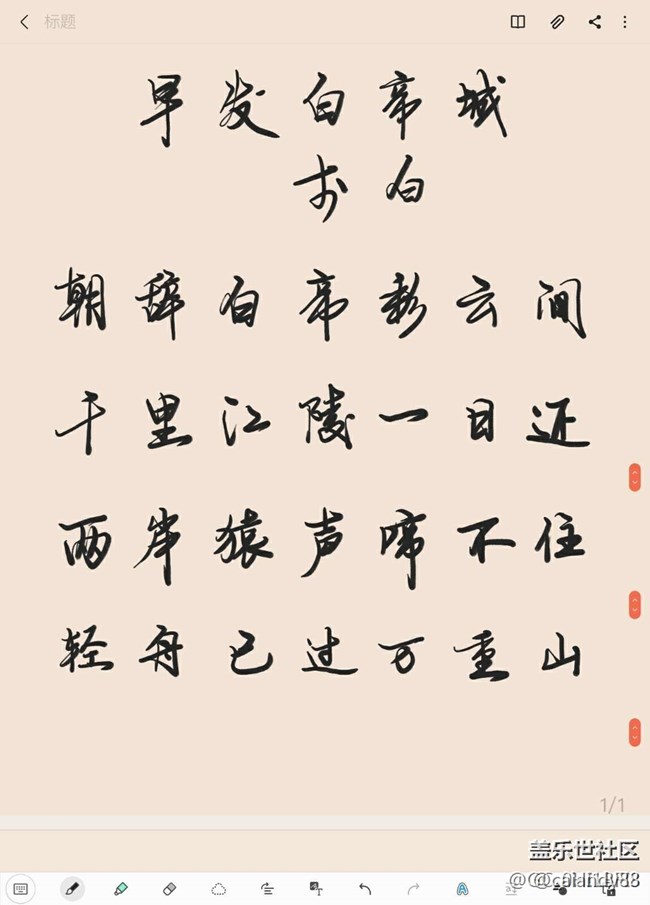 标题
早发白帝城
李白
朝辞白帝彩云间
千里江陵一日近
两岸猿声啼不住
轻舟已过万重山
1/1
盖乐世社区